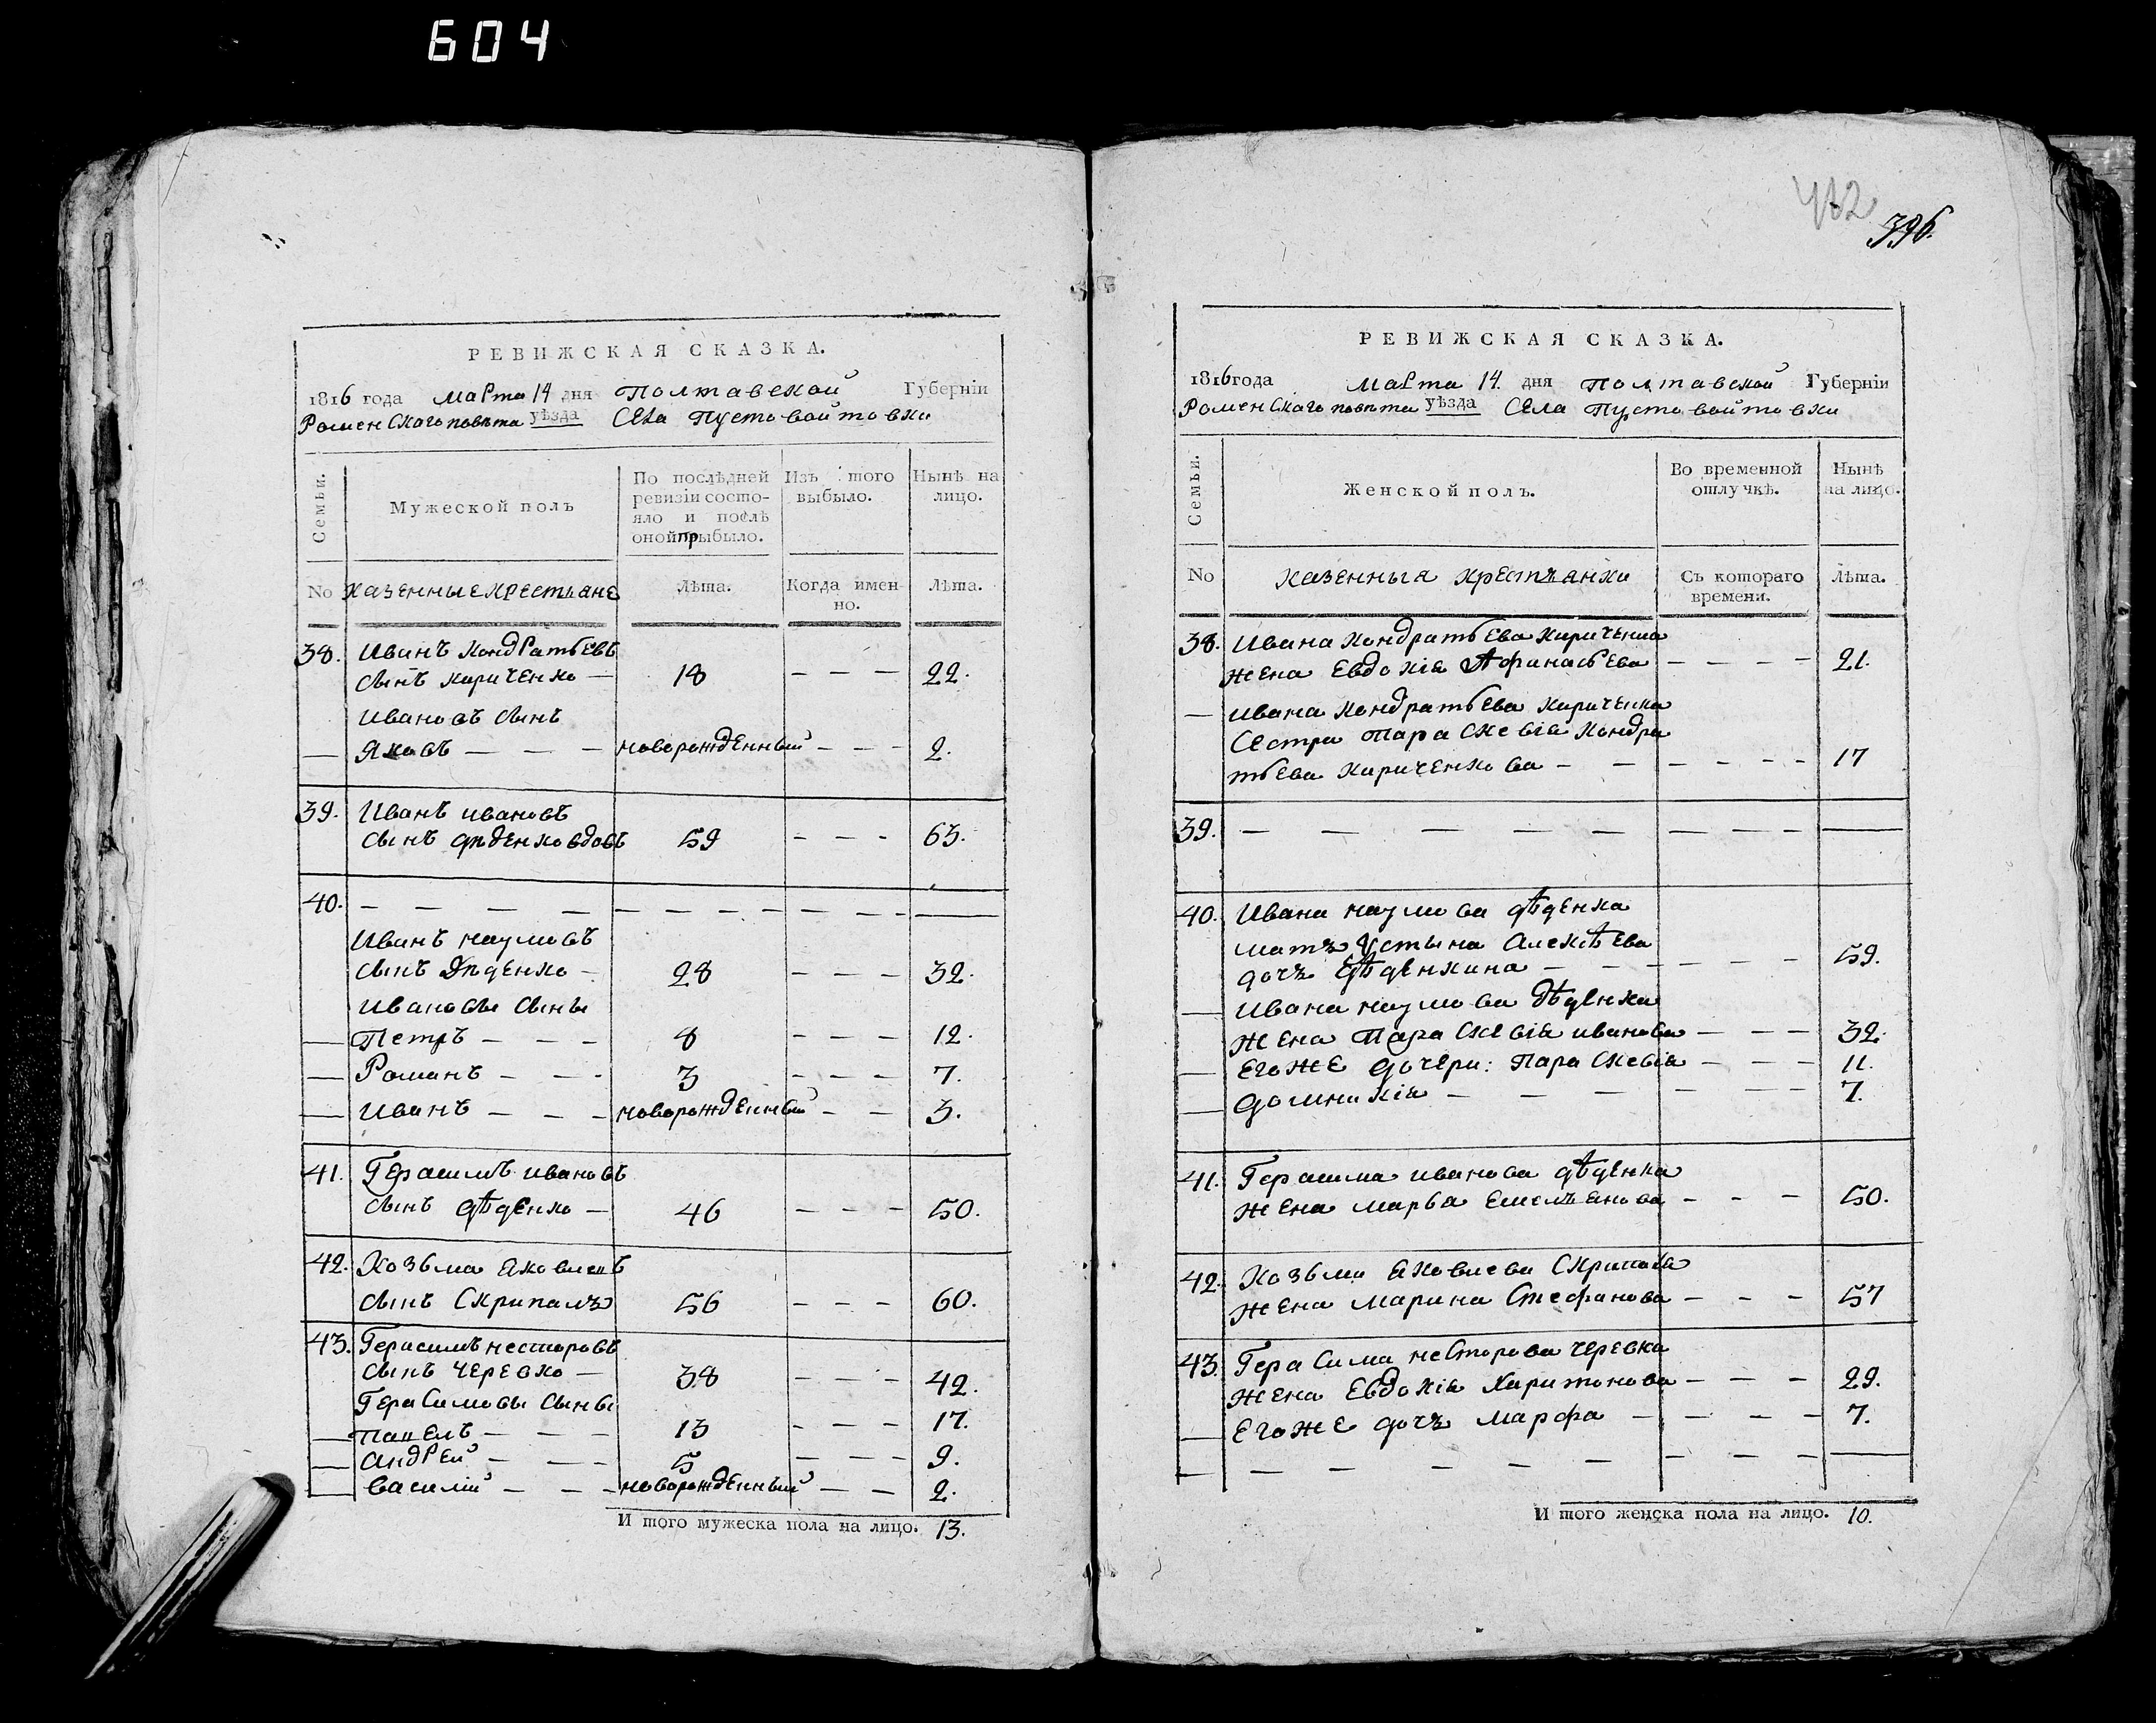 604
РЕВИЖСКАЯ СКАЗКА.
1816 года марта 14 дня Полтавской Губерніи
Роменскаго повѣта уѣзда Села Пустовойтовки
Семьи.
Мужеской полъ
По послѣдней ревизіи состо-
яло и послѣ
оной прыбыло.
Изъ того
выбыло.
Нынѣ на
лицо.
No Казенные крестьяне
Лѣта.
Когда имен-
но.
Лѣта.
38. Иванъ Кондратьевъ
сынъ Кириченко — 18 — — — 22.
Ивановъ сынъ
— Яковъ — — — новорожденный — — — 2.
39. Иванъ Ивановъ
сынъ Дѣденко вдовъ 59 — — — 63.
40. — — — — — — — — — — —
Иванъ Наумовъ
сынъ Дѣденко — 28 — — — 32.
Ивановы сыны
— Петръ — — — 8 — — — 12.
— Романъ — — — 3 — — — 7.
— Иванъ — — — новорожденный — — 3.
41. Герасимъ Ивановъ
сынъ Дѣденко — 46 — — — 50.
42. Козьма Яковлевъ
сынъ Скрипалъ 56 — — — 60.
43. Герасимъ Несторовъ
сынъ Черевко — 38 — — — 42.
Герасимовы сыны
— Павелъ — — — 13 — — — 17.
— Андрей — — — 5 — — — 9.
— Василій — — — новорожденный — — 2.
И того мужеска пола на лицо. 13.
396.
РЕВИЖСКАЯ СКАЗКА.
1816 года марта 14. дня Полтавской Губерніи
Роменскаго повѣта уѣзда Села Пустовойтовки
Семьи.
Женской полъ.
Во временной
отлучкѣ.
Нынѣ
на лицо.
No Казенныя крестьянки
Съ котораго
времени.
Лѣта.
38. Ивана Кондратьева Кириченка
жена Евдокія Афанасьева — — — — 21.
— Ивана Кондратьева Кириченка
сестра Параскевія Кондра
тьева Кириченкова — — — — — — 17
39. — — — — — — — — —
40. Ивана Наумова Дѣденка
мать Устына Алексѣева
дочъ Дѣденкина — — — — — — 59.
— Ивана Наумова Дѣденка
жена Параскевія Иванова — — — 32.
— Егоже дочери: Параскевія — — — 11.
— Домникія — — — — — — 7.
41. Герасима Иванова Дѣденка
жена Марья Емельянова — — — 50.
42. Козьмы Яковлева Скрипаля
жена Марина Стефанова — — — 57
43. Герасима Несторова Черевка
жена Евдокія Харитонова — — — 29.
— Егоже дочъ Марфа — — — — 7.
— — — — — — — — — — —
И того женска пола на лицо. 10.